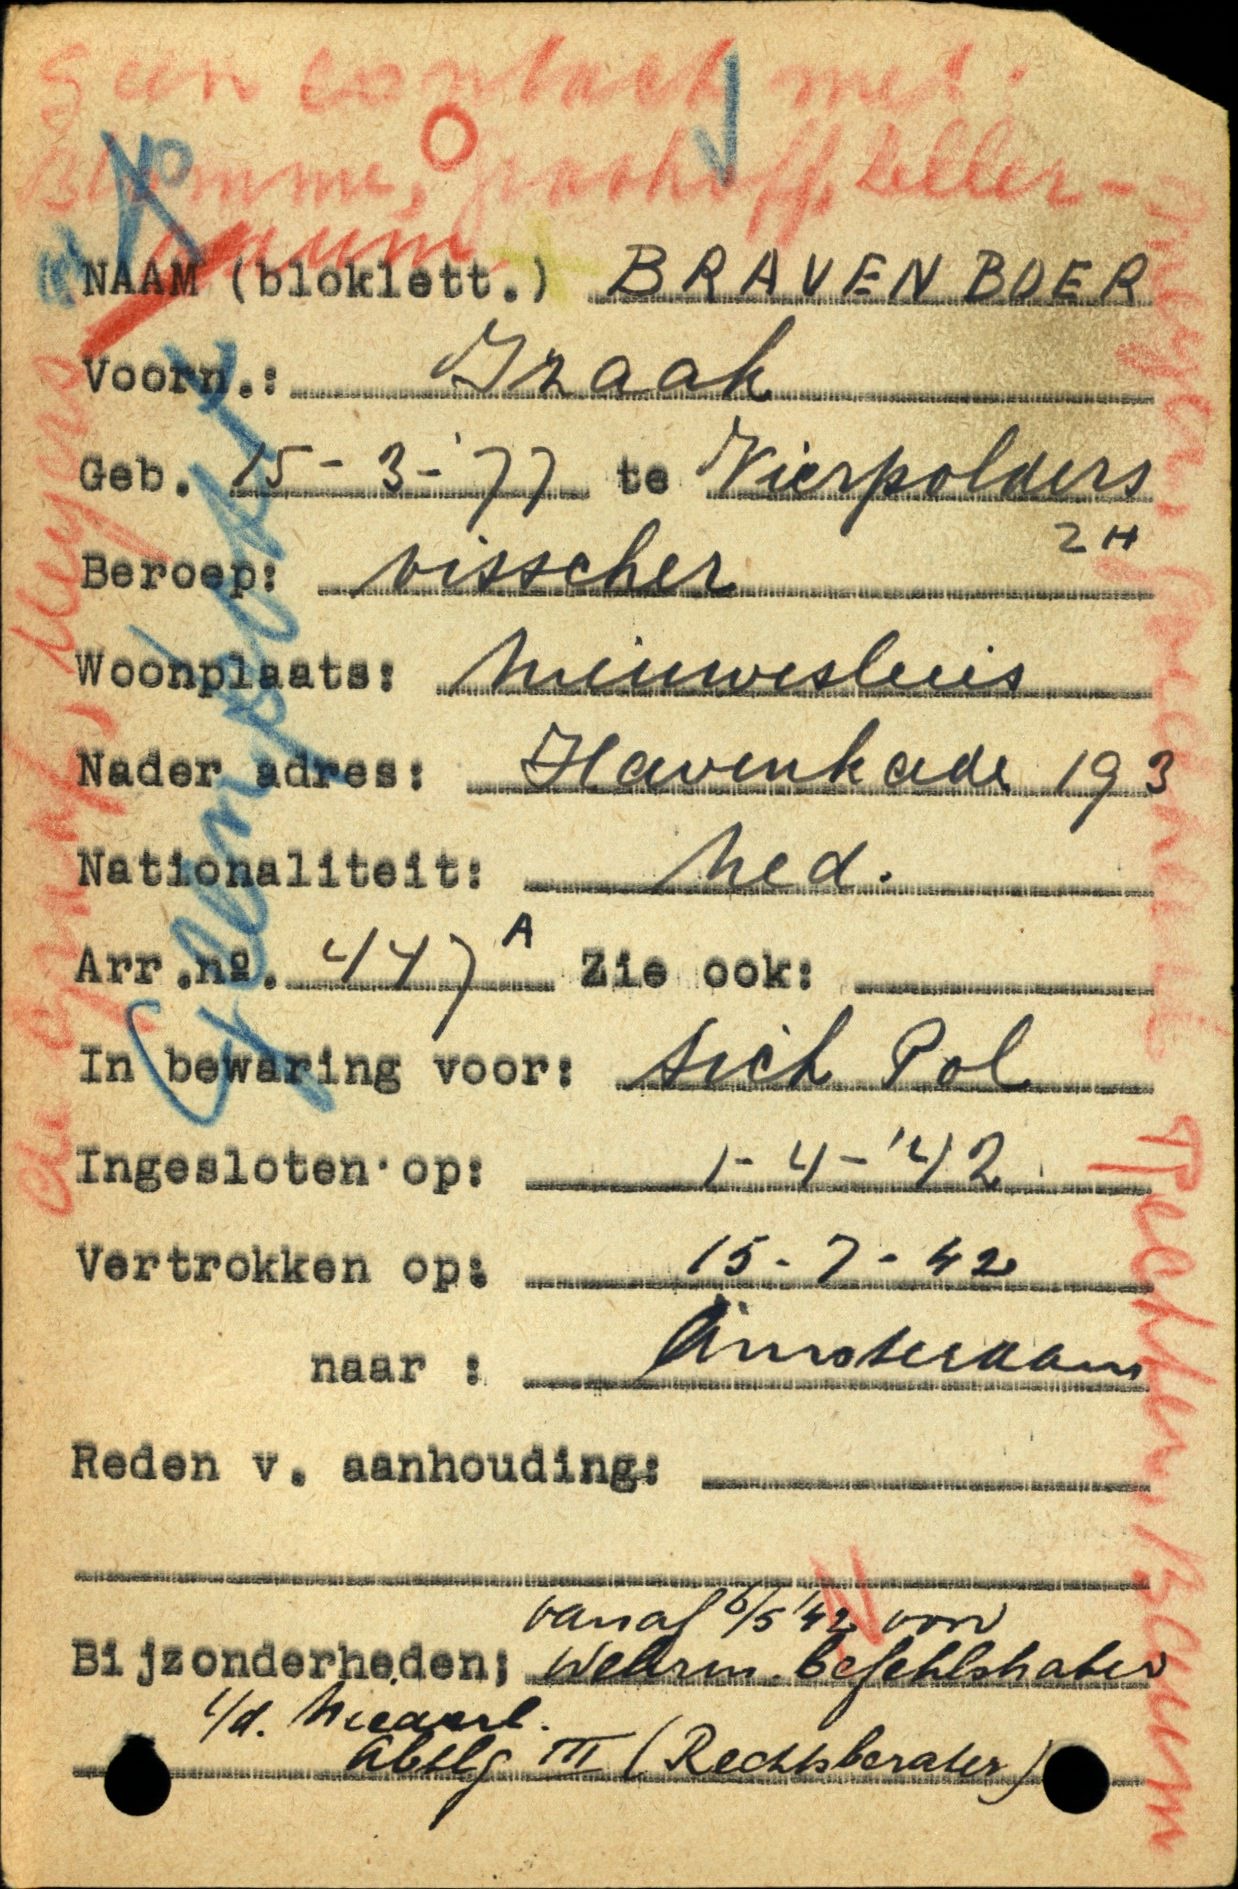 Geen contact met:
Blomme, Grashoff, teller-
baum
NAAM (bloklett.) BRAVENBOER
Voorn.: Izaak
Geb. 15-3-'77 te Vierpolders
ZH
Beroep: visscher
Woonplaats: Nieuwesluis
Nader adres: Havenkade 193
Nationaliteit: Ned.
Arr.no. 447 A Zie ook:
In bewaring voor: Sich Pol
Ingesloten op: 1-4-'42
Vertrokken op: 15-7-42
naar : Amsterdam
Reden v. aanhouding:
vanaf 6/5 '42 voor
Bijzonderheden; Wehrm. befehlshaber
i/d. Niederl.
Abtlg III (Rechtsberater)